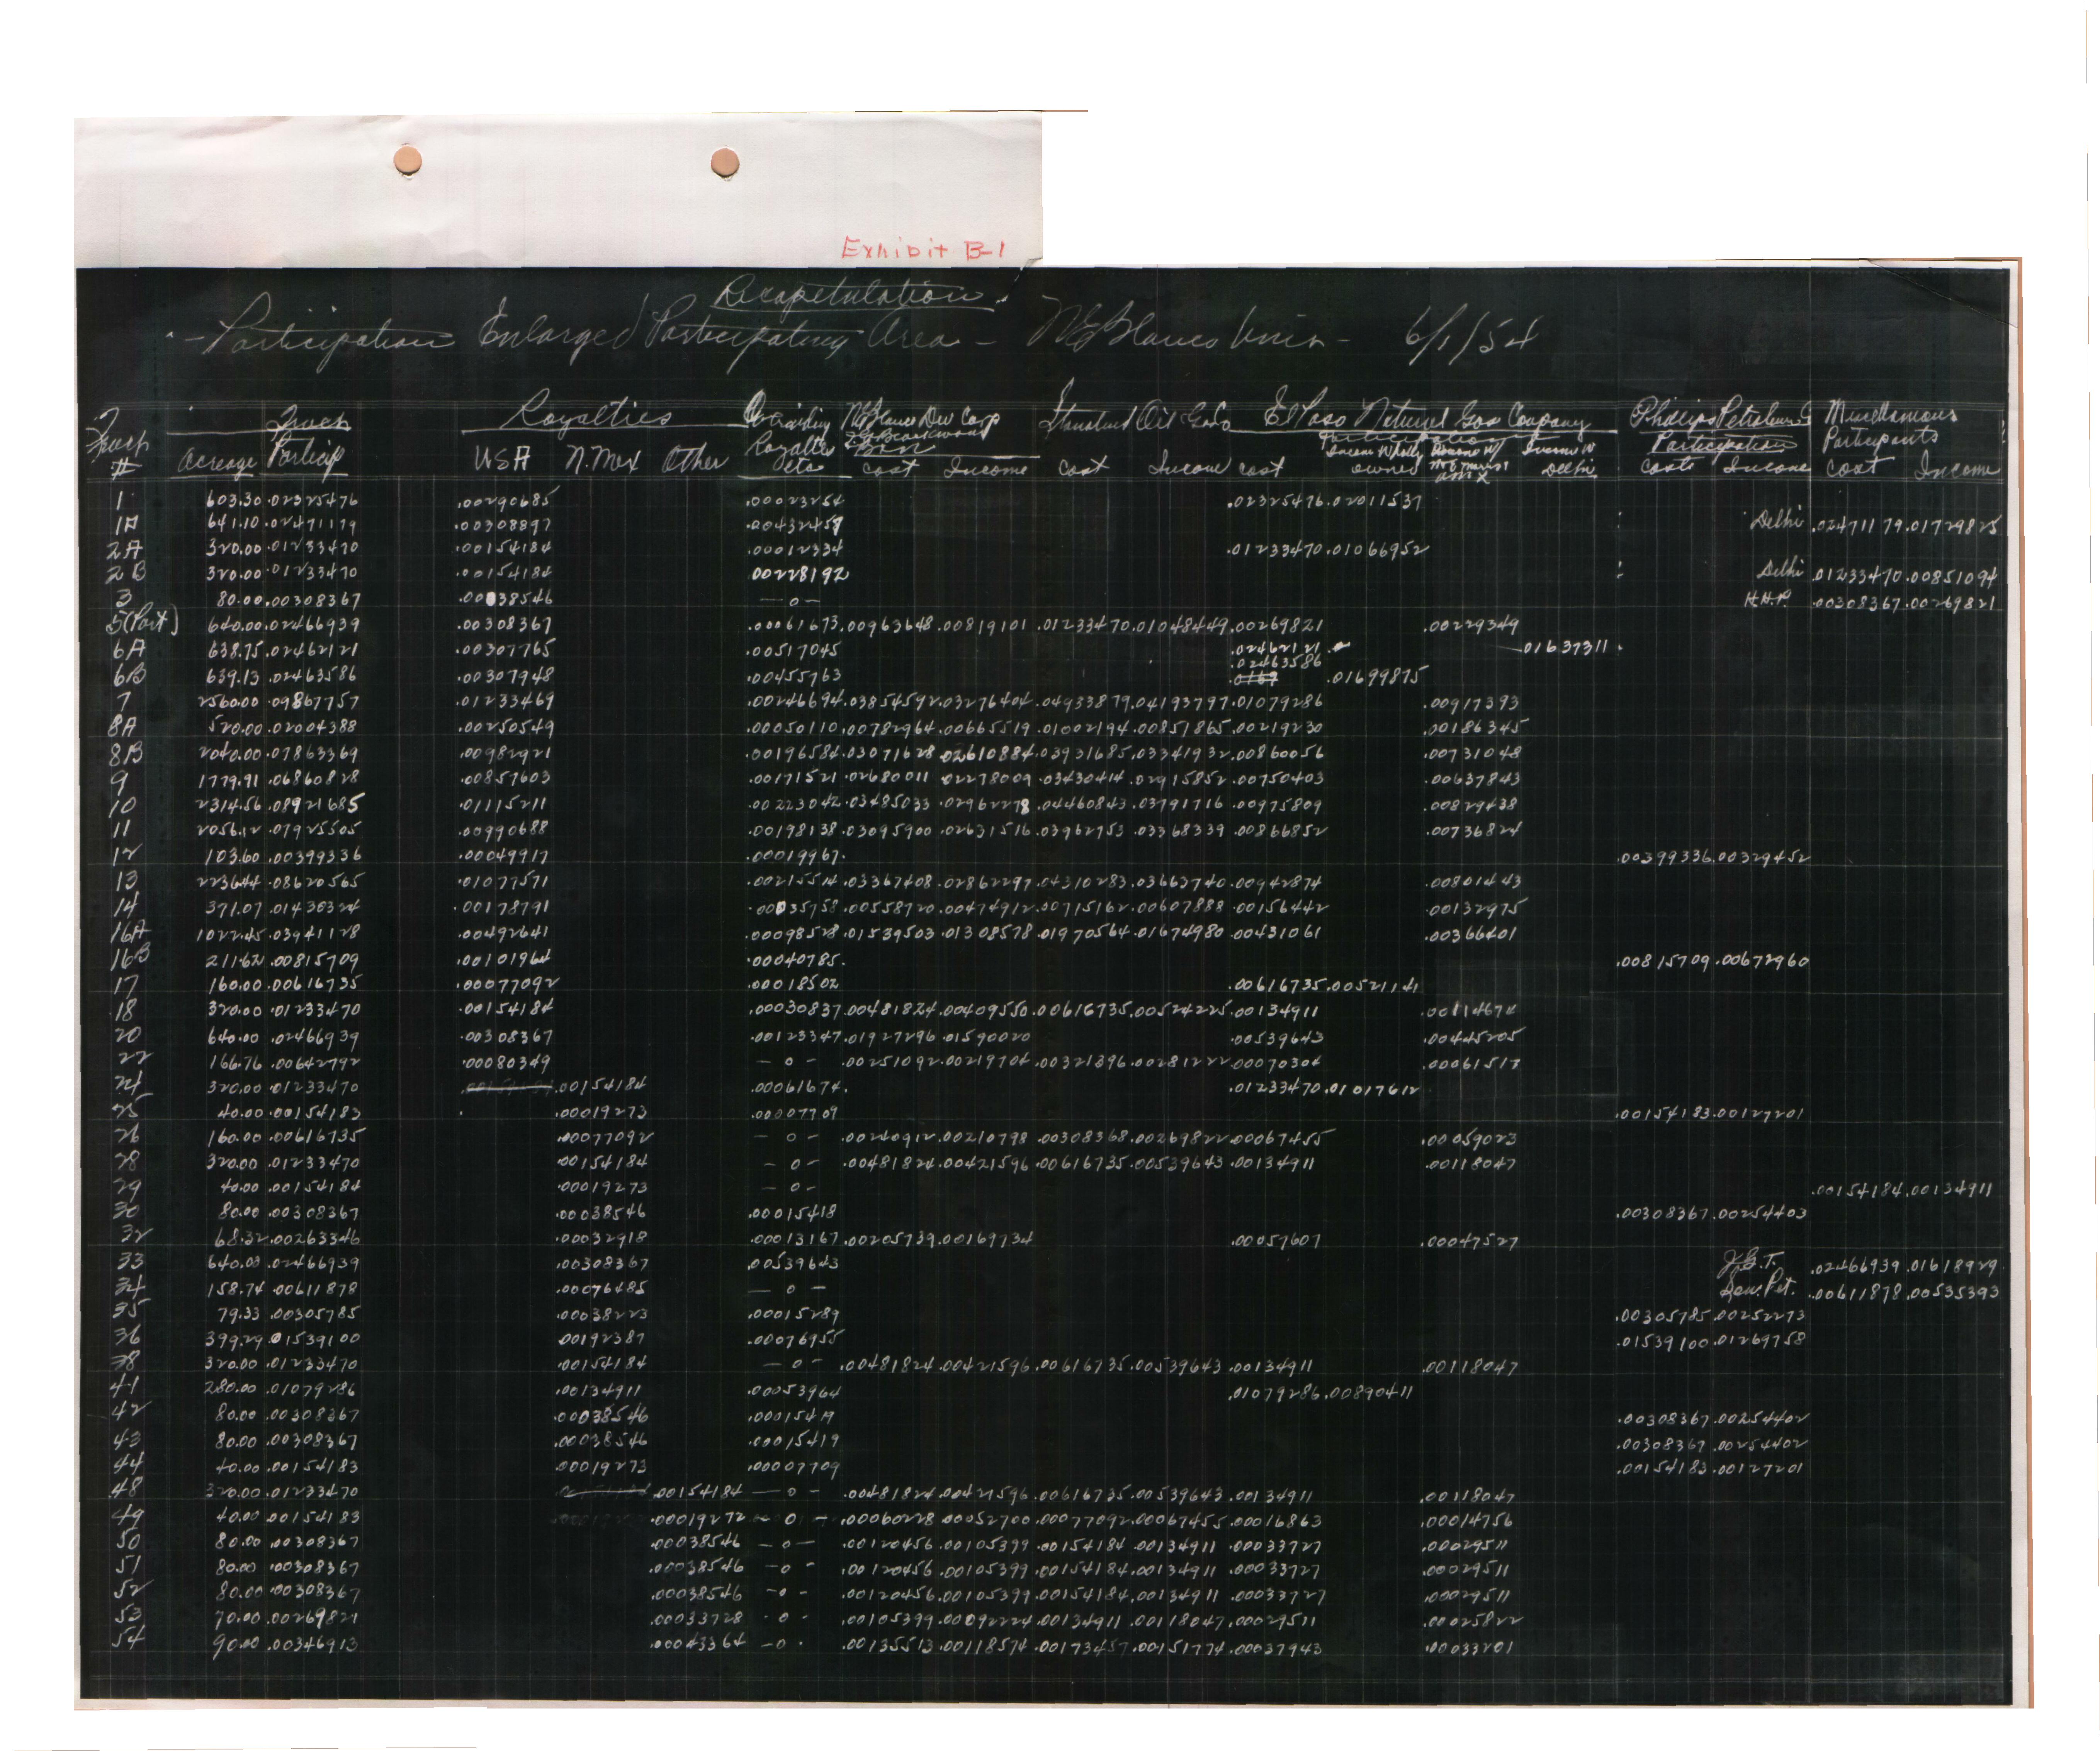 Exhibit B-1
Recapitulation
- Participation Enlarged Participating Area - NE Blanco Unit - 6/1/54
Tract Royalties Overriding NE Blanco Dev Corp Stanolind Oil & Gas Co El Paso Natural Gas Company Phillips Petroleum Co Miscellaneous
Tract # Acreage Particip USA N.Mex Other Royalties etc Cost Income Cost Income Cost Income Wholly owned Income W Delhi Participation Costs Income Participants Cost Income
1 603.30 .02325476 .00290685 .00023254 .02325476 .02011537
1A 641.10 .02471179 .00308897 .00432457 Delhi .02471179 .01729825
2A 320.00 .01233470 .00154184 .00012334 .01233470 .01066952
2B 320.00 .01233470 .00154184 .00228192 Delhi .01233470 .00851094
3 80.00 .00308367 .00038546 - 0 - H.H.P. .00308367 .00269821
5(Part) 640.00 .02466939 .00308367 .00061673 .00963648 .00819101 .01233470 .01048449 .00269821 .00229349
6A 638.75 .02462121 .00307765 .00517045 .02462121 .01637311
6B 639.13 .02463586 .00307948 .00455763 .02463586 .01699875
7 2560.00 .09867757 .01233469 .00246694 .03854592 .03276404 .04933879 .04193797 .01079286 .00917393
8A 520.00 .02004388 .00250549 .00050110 .00782964 .00665519 .01002194 .00851865 .00219230 .00186345
8B 2040.00 .07863369 .00982921 .00196584 .03071628 .02610884 .03931685 .03341932 .00860056 .00731048
9 1779.91 .06860828 .00857603 .00171521 .02680011 .02278009 .03430414 .02915852 .00750403 .00637843
10 2314.56 .08921685 .01115211 .00223042 .03485033 .02962278 .04460843 .03791716 .00975809 .00829438
11 2056.12 .07925505 .00990688 .00198138 .03095900 .02631516 .03962753 .03368339 .00866852 .00736824
12 103.60 .00399336 .00049917 .00019967 .00399336 .00329452
13 2236.44 .08620565 .01077571 .00215514 .03367408 .02862297 .04310283 .03663740 .00942874 .00801443
14 371.07 .01430324 .00178791 .00035758 .00558720 .00474912 .00715162 .00607888 .00156442 .00132975
16A 1022.45 .03941128 .00492641 .00098528 .01539503 .01308578 .01970564 .01674980 .00431061 .00366401
16B 211.62 .00815709 .00101964 .00040785 .00815709 .00672960
17 160.00 .00616735 .00077092 .00018502 .00616735 .00521141
18 320.00 .01233470 .00154184 .00030837 .00481824 .00409550 .00616735 .00524225 .00134911 .00114674
20 640.00 .02466939 .00308367 .00123347 .01927296 .01590020 .00539643 .00445205
22 166.76 .00642792 .00080349 - 0 - .00251092 .00219704 .00321396 .00281222 .00070304 .00061517
24 320.00 .01233470 .00154184 .00061674 .01233470 .01017612
25 40.00 .00154183 .00019273 .00007709 .00154183 .00127201
26 160.00 .00616735 .00077092 - 0 - .00240912 .00210798 .00308368 .00269822 .00067455 .00059023
28 320.00 .01233470 .00154184 - 0 - .00481824 .00421596 .00616735 .00539643 .00134911 .00118047
29 40.00 .00154184 .00019273 - 0 - .00154184 .00134911
30 80.00 .00308367 .00038546 .00015418 .00308367 .00254403
32 68.32 .00263346 .00032918 .00013167 .00205739 .00169734 .00057607 .00047527
33 640.00 .02466939 .00308367 .00539643 J.G.T. .02466939 .01618929
34 158.74 .00611878 .00076485 - 0 - Sou. Pet. .00611878 .00535393
35 79.33 .00305785 .00038223 .00015289 .00305785 .00252273
36 399.29 .01539100 .00192387 .00076955 .01539100 .01269758
38 320.00 .01233470 .00154184 - 0 - .00481824 .00421596 .00616735 .00539643 .00134911 .00118047
41 280.00 .01079286 .00134911 .00053964 .01079286 .00890411
42 80.00 .00308367 .00038546 .00015419 .00308367 .00254402
43 80.00 .00308367 .00038546 .00015419 .00308367 .00254402
44 40.00 .00154183 .00019273 .00007709 .00154183 .00127201
48 320.00 .01233470 .00154184 - 0 - .00481824 .00421596 .00616735 .00539643 .00134911 .00118047
49 40.00 .00154183 .00019272 - 0 - .00060228 .00052700 .00077092 .00067455 .00016863 .00014756
50 80.00 .00308367 .00038546 - 0 - .00120456 .00105399 .00154184 .00134911 .00033727 .00029511
51 80.00 .00308367 .00038546 - 0 - .00120456 .00105399 .00154184 .00134911 .00033727 .00029511
52 80.00 .00308367 .00038546 - 0 - .00120456 .00105399 .00154184 .00134911 .00033727 .00029511
53 70.00 .00269821 .00033728 - 0 - .00105399 .00092224 .00134911 .00118047 .00029511 .00025822
54 90.00 .00346913 .00043364 - 0 - .00135513 .00118574 .00173457 .00151774 .00037943 .00033201